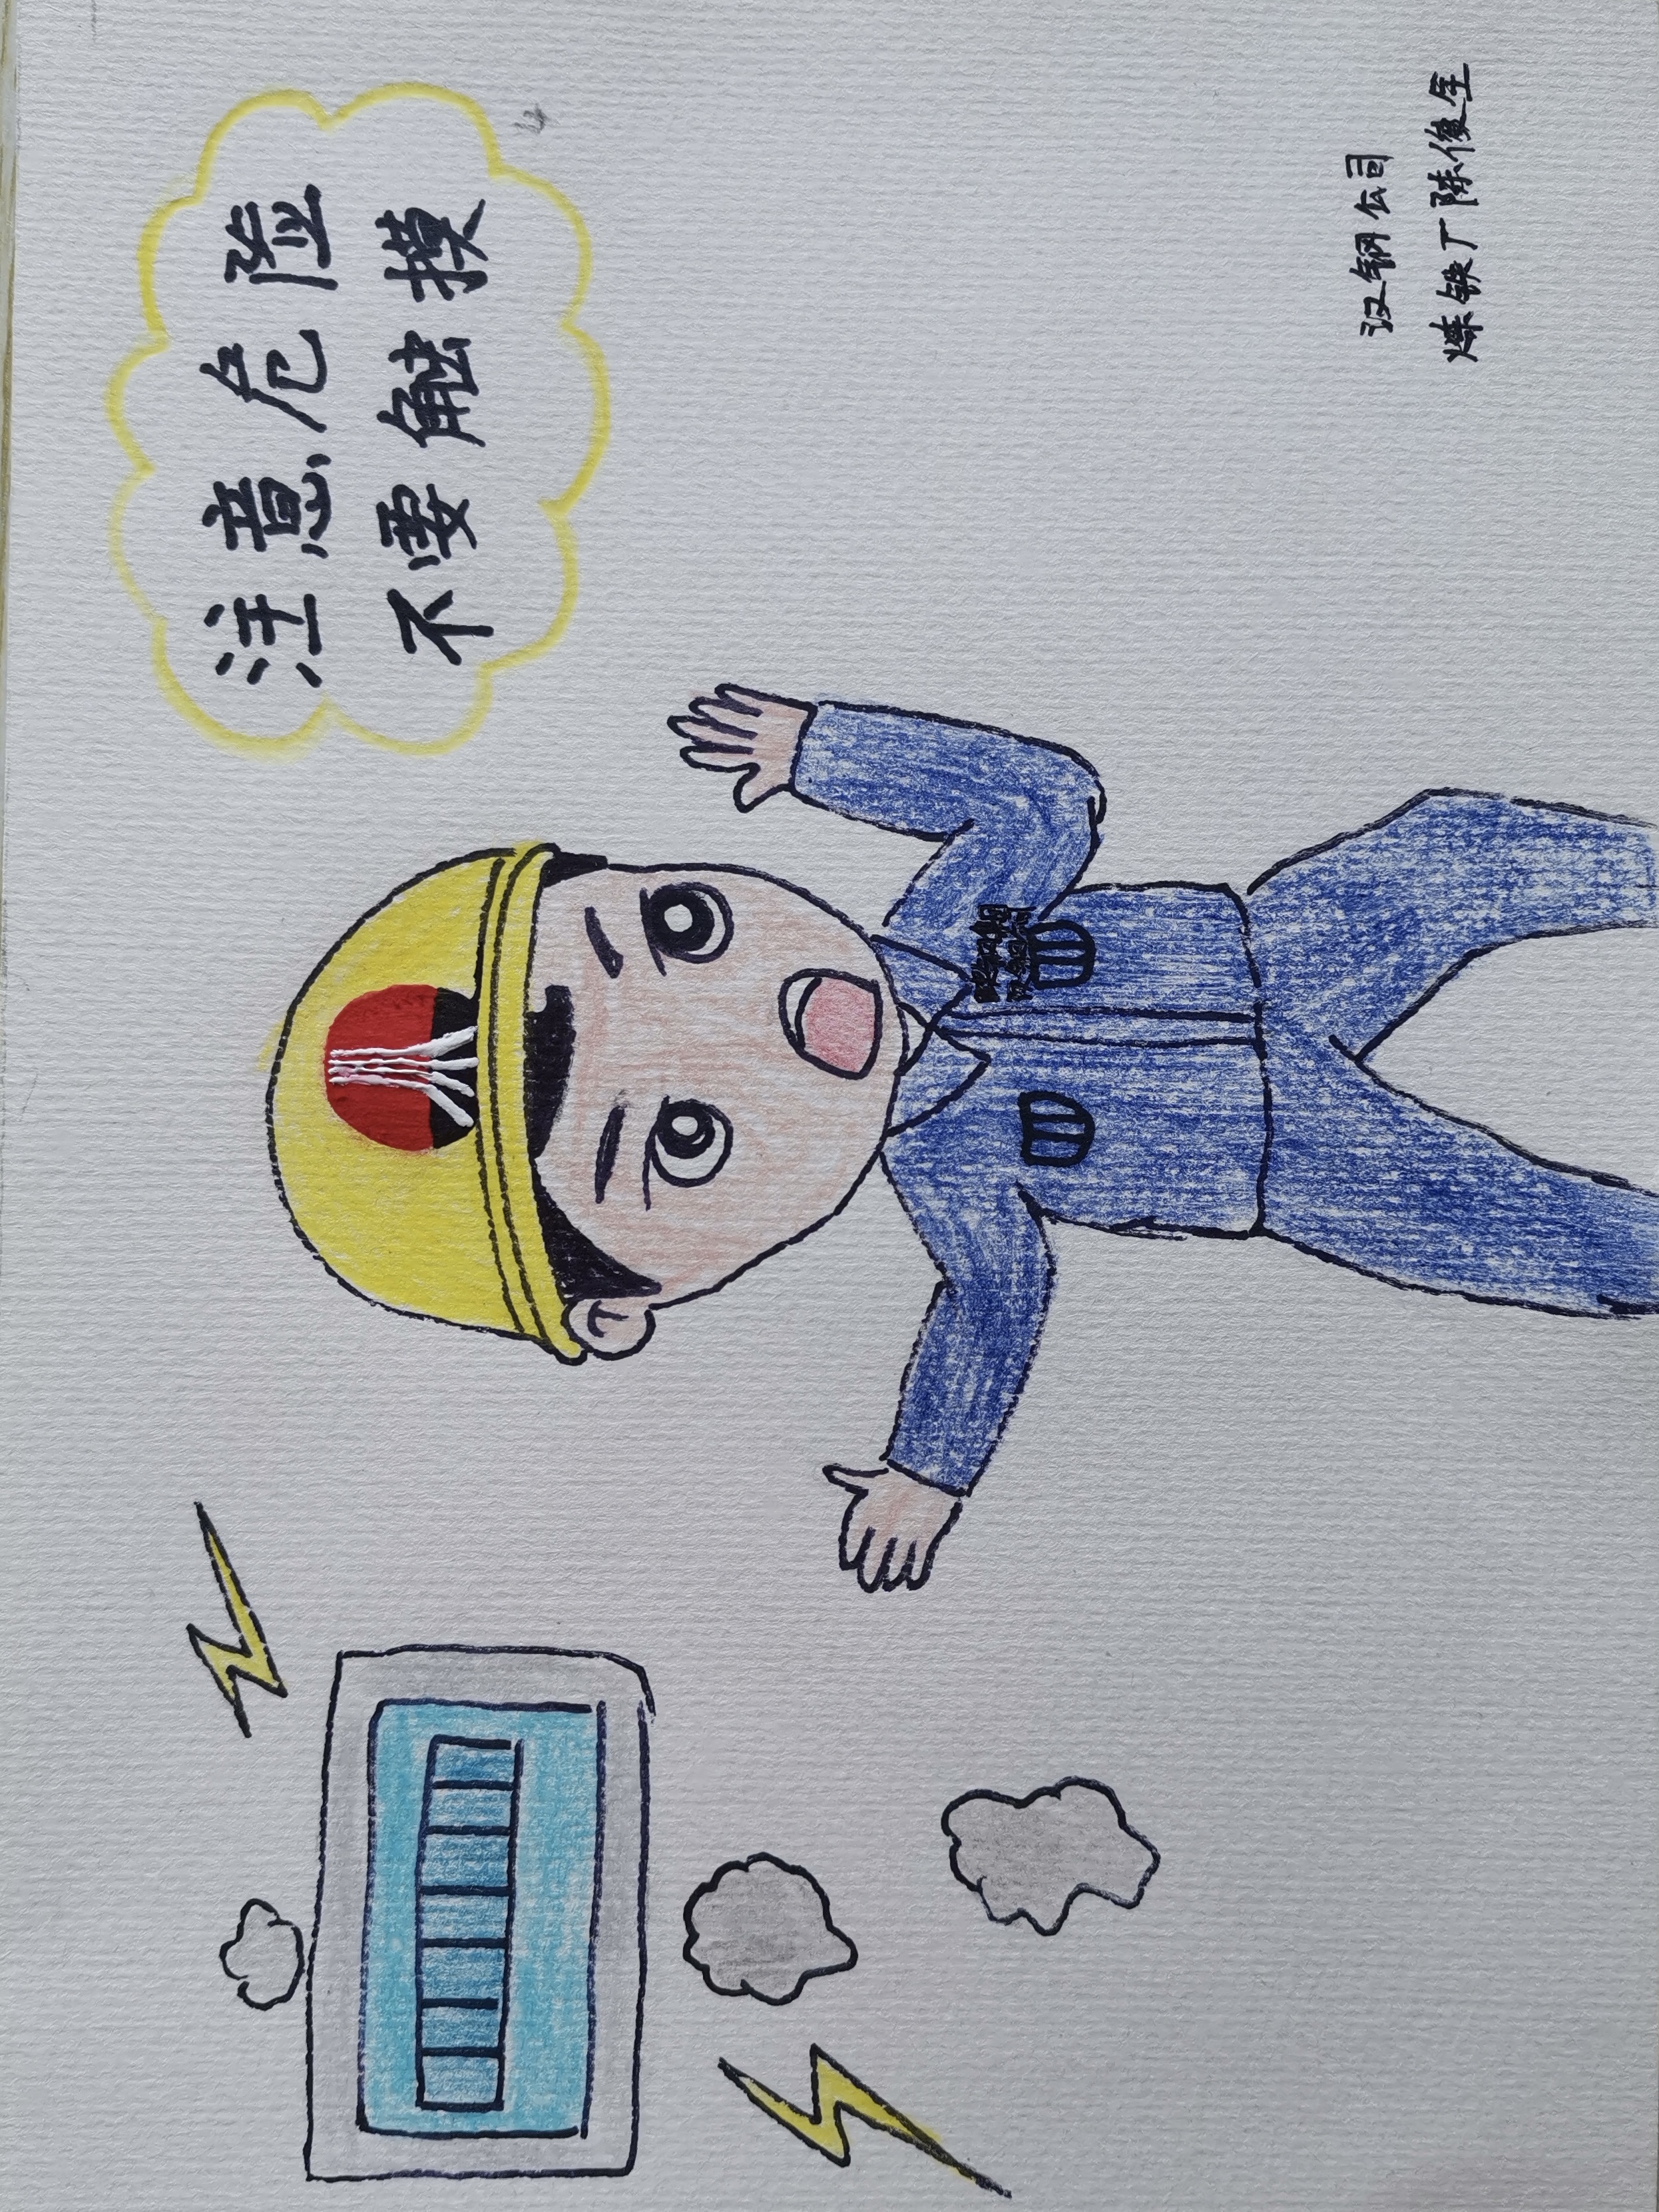 注意危险
不要触摸
汉钢公司
炼铁厂陈俊全